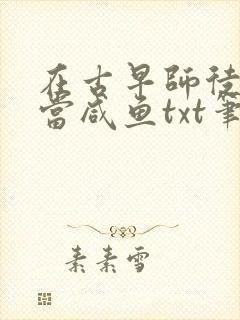 在古早師徒
當咸魚txt筆
素素雪